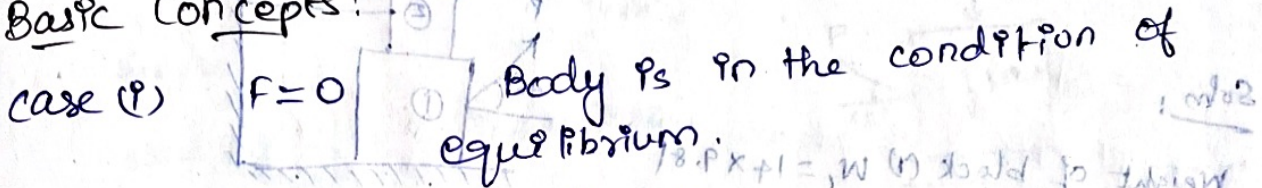 Basic Concepts:
case (i) F=0 Body is in the condition of
equilibrium.